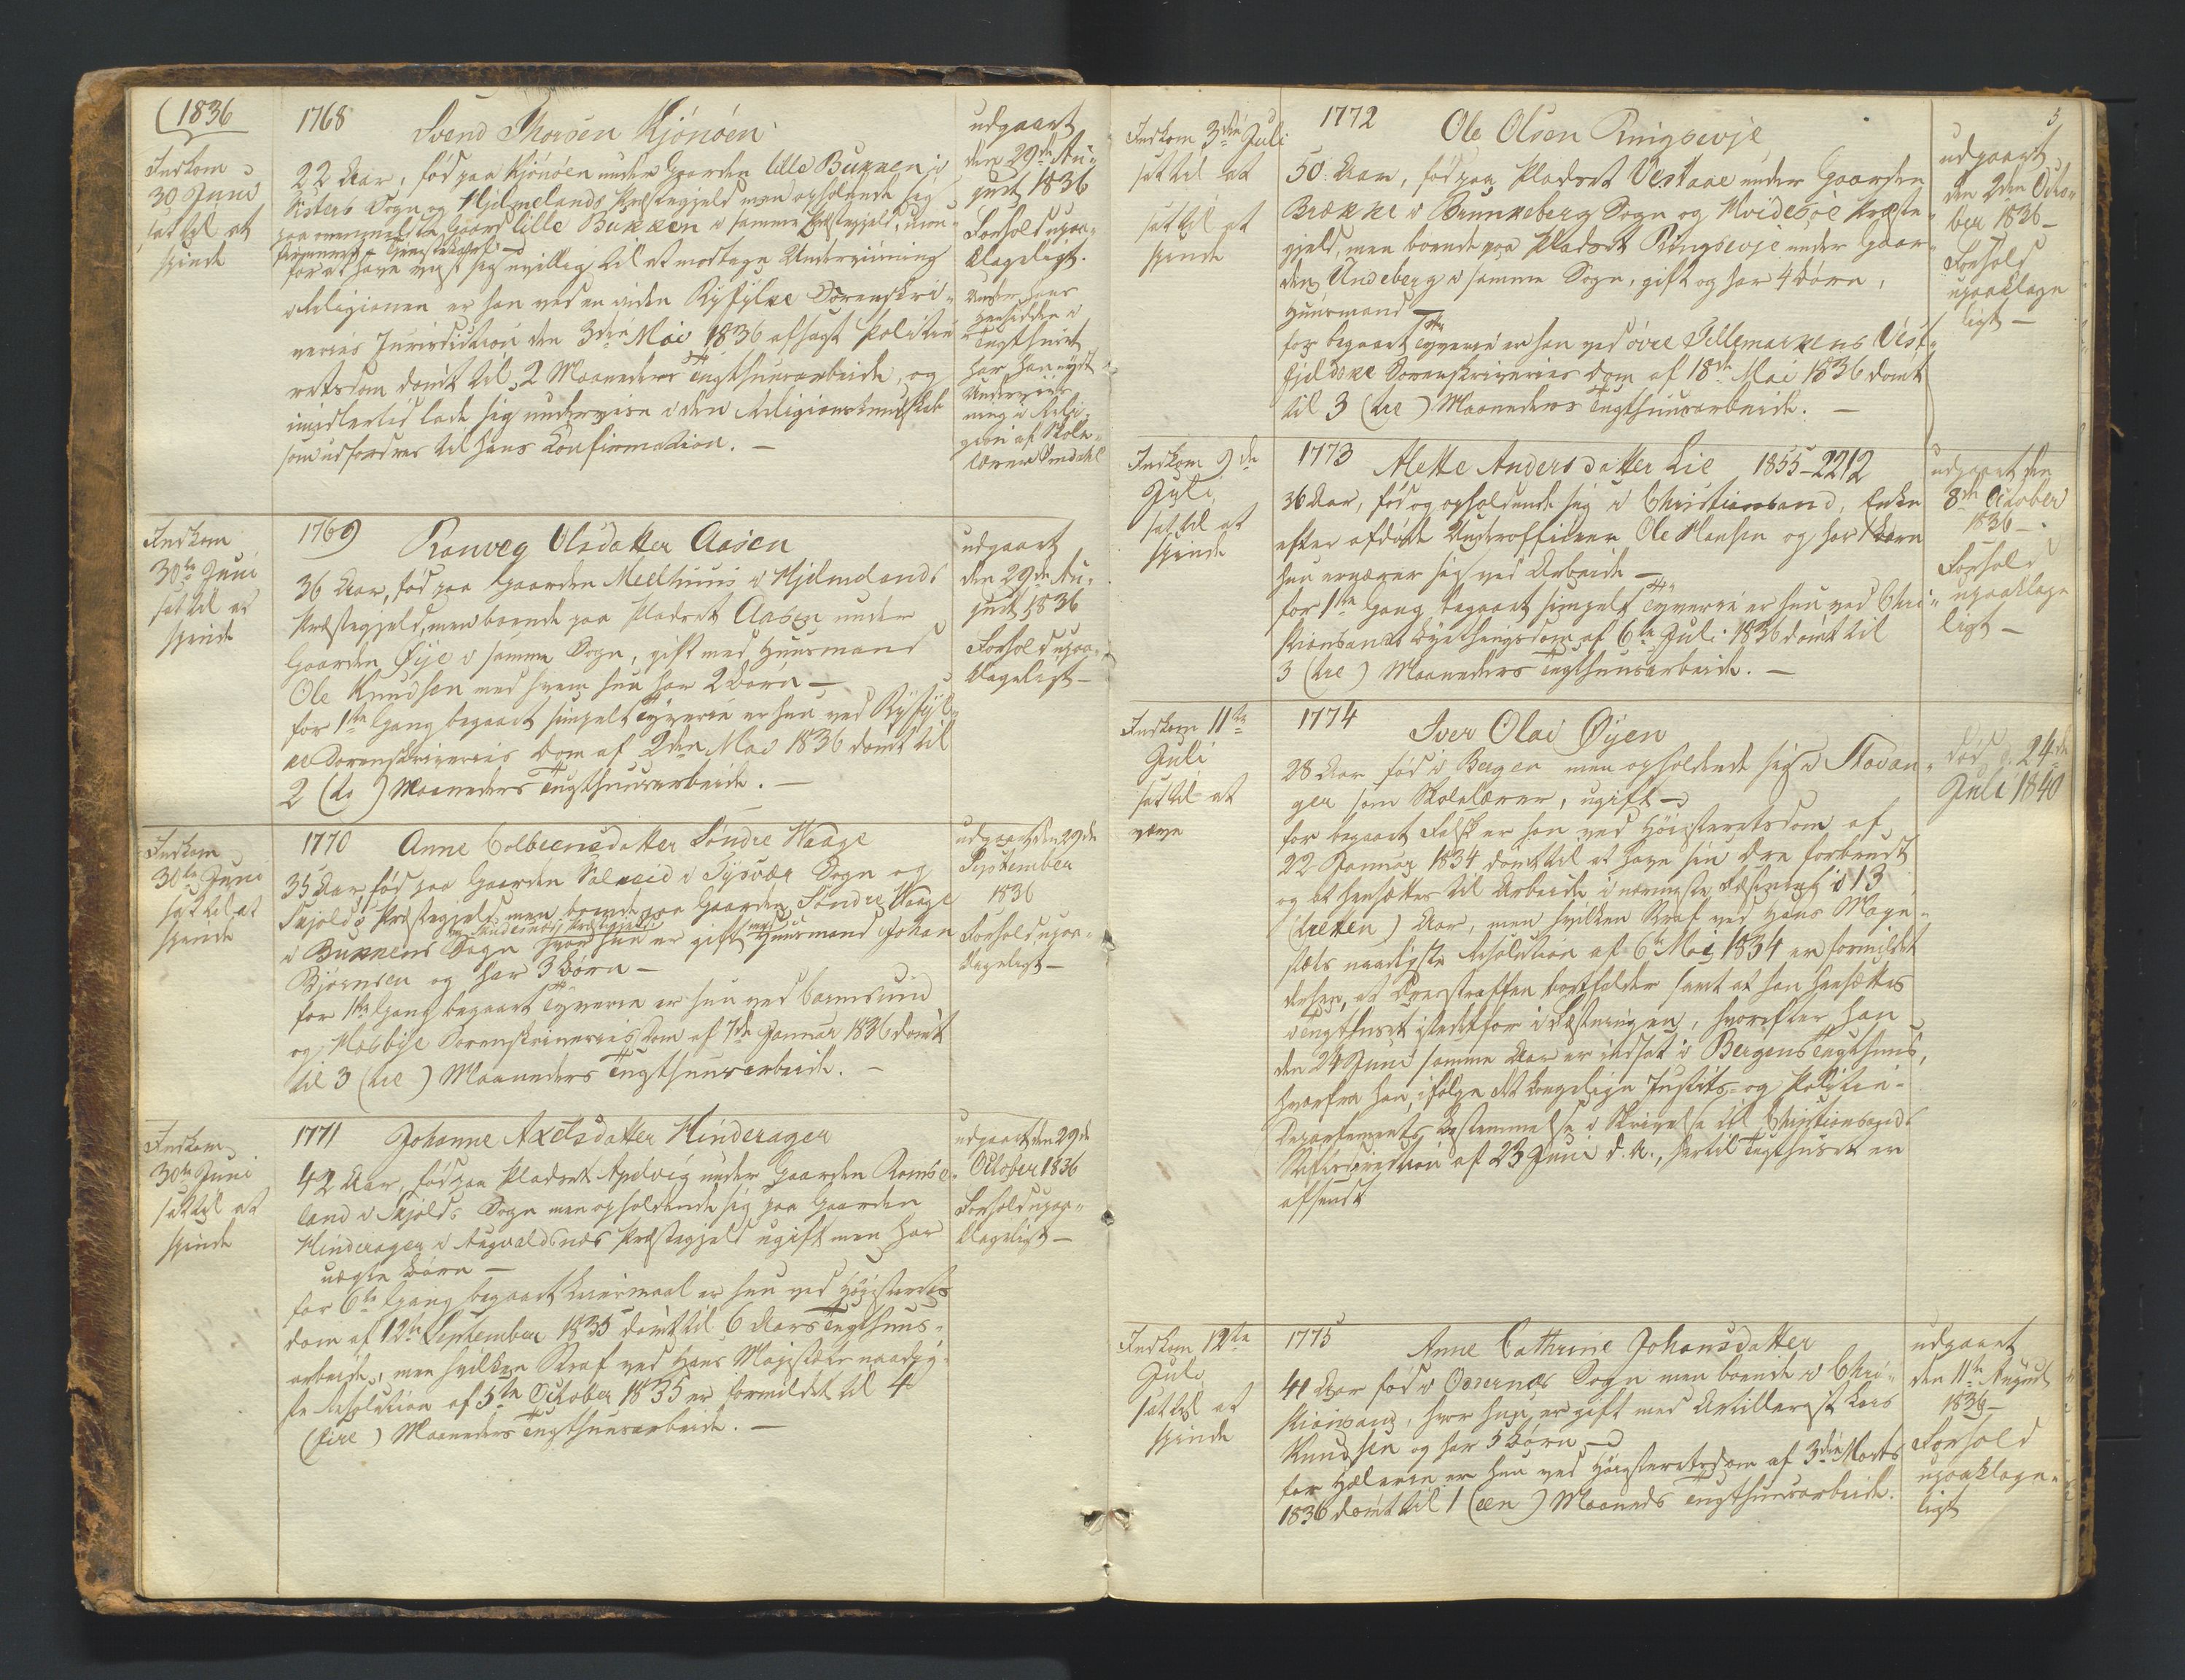 1836
Indkom
30 Juni
sat til at
spinde
1768 Svend Thorsen Kjönöen
22 Aar, född paa Kjönöen under Gaarden lille Bukken i
Sisters Sogn og Hjelmelands Præstegjeld men opholdende sig
paa Gaard lille Bukken i samme Præstegjeld, ukon-
firmeret
for at have viist sig uvillig til at modtage Underviisning
i Religionen er han ved en inden Ryfylke Sorenskri-
veries Jurisdiction den 3die Mai 1836 afsagt Politie
retsdom dömt til 2 Maaneders Tugthuusarbeide, og
imidlertid lade sig undervise i den Religionskundskab
som udfordres til hans Confirmation. —
udgaaet
den 29de Au-
gust 1836
Forhold upaa-
klageligt.
Under hans
Hensidden i
Tugthuset
har han nydt
Underviis-
ning i Reli-
gion af Skole-
lærer
Indkom
30te Juni
sat til at
spinde
1769 Ranveg Olsdatter Aasen
36 Aar, född paa Gaarden Melhuus i Hjelmelands
Præstegjeld, men boende paa Pladset Aasen under
Gaarden Öije i samme Sogn, gift med Huusmand
Ole Knudsen med hvem hun har 2 Börn —
for 1te Gang begaaet simpelt Tyverie er hun ved Ryfyl-
ke Sorenskriveries Dom af 2den Mai 1836 dömt til
2 (to) Maaneders Tugthuusarbeide. —
udgaaet
den 29de Au-
gust 1836
Forhold upaa-
klageligt —
Indkom
30te Juni
sat til at
spinde
1770 Anne Colbeensdatter Söndre Waage
35 Aar, född paa Gaarden Solheid i Tysvær Sogn og
Skjolds Præstegjeld men boende paa Gaarden Söndre Waage
i Bukkens Sogn hvor hun er gift med Huusmand Johan
Björnsen og har 3 Börn —
for 1te Gang begaaet Tyverie er hun ved Carmsund
og Hesbye Sorenskriveries Dom af 7de Januar 1836 dömt
til 3 (tre) Maaneders Tugthuusarbeide. —
udgaaet den 29de
September
1836
Forhold upaa-
klageligt —
Indkom
30te Juni
sat til at
spinde
1771 Johanne Axelsdatter Hinderager
42 Aar, född paa Pladset Apelvig under Gaarden Romse-
land i Skjolds Sogn men opholdende sig paa Gaarden
Hinderager i Augvaldsnæs Præstegjeld ugift men har
uægte Börn —
for 6te Gang begaaet Leiermaal er hun ved Höiesterets
dom af 12te September 1835 dömt til 6 Aars Tugthuus-
arbeide, men hvilken Straf ved Hans Majestæts naadig-
ste Resolution af 5te October 1835 er formildet til 4
(fire) Maaneders Tugthuusarbeide. —
udgaaet den 29de
October 1836
Forhold upaa-
klageligt —
5
Indkom 3die Juli
sat til at
sat til at
spinde
1772 Ole Olsen Ringsevje
50 Aar, född paa Pladset Vestaae under Gaarden
Brække i Brunkeberg Sogn og Hvidesöe Præste-
gjeld, men boende paa Pladset Ringsevje under Gaar-
den Undeberg i samme Sogn, gift og har 4 Börn,
Huusmand —
for begaaet Tyverie er han ved övre Tellemarkens Vest-
fjeldske Sorenskriveries Dom af 18de Mai 1836 dömt
til 3 (tre) Maaneders Tugthuusarbeide. —
udgaaet
den 2den Octo-
ber 1836 —
Forhold
upaaklage
ligt —
Indkom 9de
Juli
sat til at
spinde
1773 Alette Andersdatter Lie 1855-2212
36 Aar, född og opholdende sig i Christiansand, Enke
efter afdöde Underofficeer Ole Hansen og har 1 Barn
hun ernærer sig ved Arbeide —
for 1te Gang begaaet simpelt Tyverie er hun ved Chri-
stiansands Byethingsdom af 6te Juli 1836 dömt til
3 (tre) Maaneders Tugthuusarbeide. —
udgaaet den
8de October
1836 —
Forhold
upaaklage
ligt —
Indkom 11te
Juli
sat til at
væve
1774 Iver Olai Öyen
28 Aar född i Bergen men opholdende sig i Stavan-
ger som Skolelærer, ugift —
for begaaet Falsk er han ved Höiesteretsdom af
22 Januar 1834 dömt til at have sin Ære forbrudt
og at hensættes til Arbeide i nærmeste Fæstning i 13
(tretten) Aar, men hvilken Straf ved Hans Maje-
stæts naadigste Resolution af 6te Mai 1834 er formildet
derhen, at Æresstraffen bortfalder samt at han hensættes
i Tugthuset istedetfor i Fæstningen, hvorefter han
den 24 Juni samme Aar er indsat i Bergens Tugthuus,
hvorfra han, ifölge det Kongelige Justits- og Politie-
Departements Bestemmelse i Skrivelse til Christiansands
Stiftsdirection af 23 Juni d. A., hertil Tugthuset er
afsendt
död d. 24de
Juli 1840
Indkom 12te
Juli
sat til at
spinde
1775 Anne Cathrine Johansdatter
41 Aar född i Oddernæs Sogn men boende i Chri-
stiansand, hvor hun er gift med Artillerist Lars
Knudsen og har 5 Börn —
for Hæleri er hun ved Höiesteretsdom af 3die Marts
1836 dömt til 1 (een) Maaneds Tugthuusarbeide.
udgaaet
den 11te August
1836 —
Forhold
upaaklage-
ligt